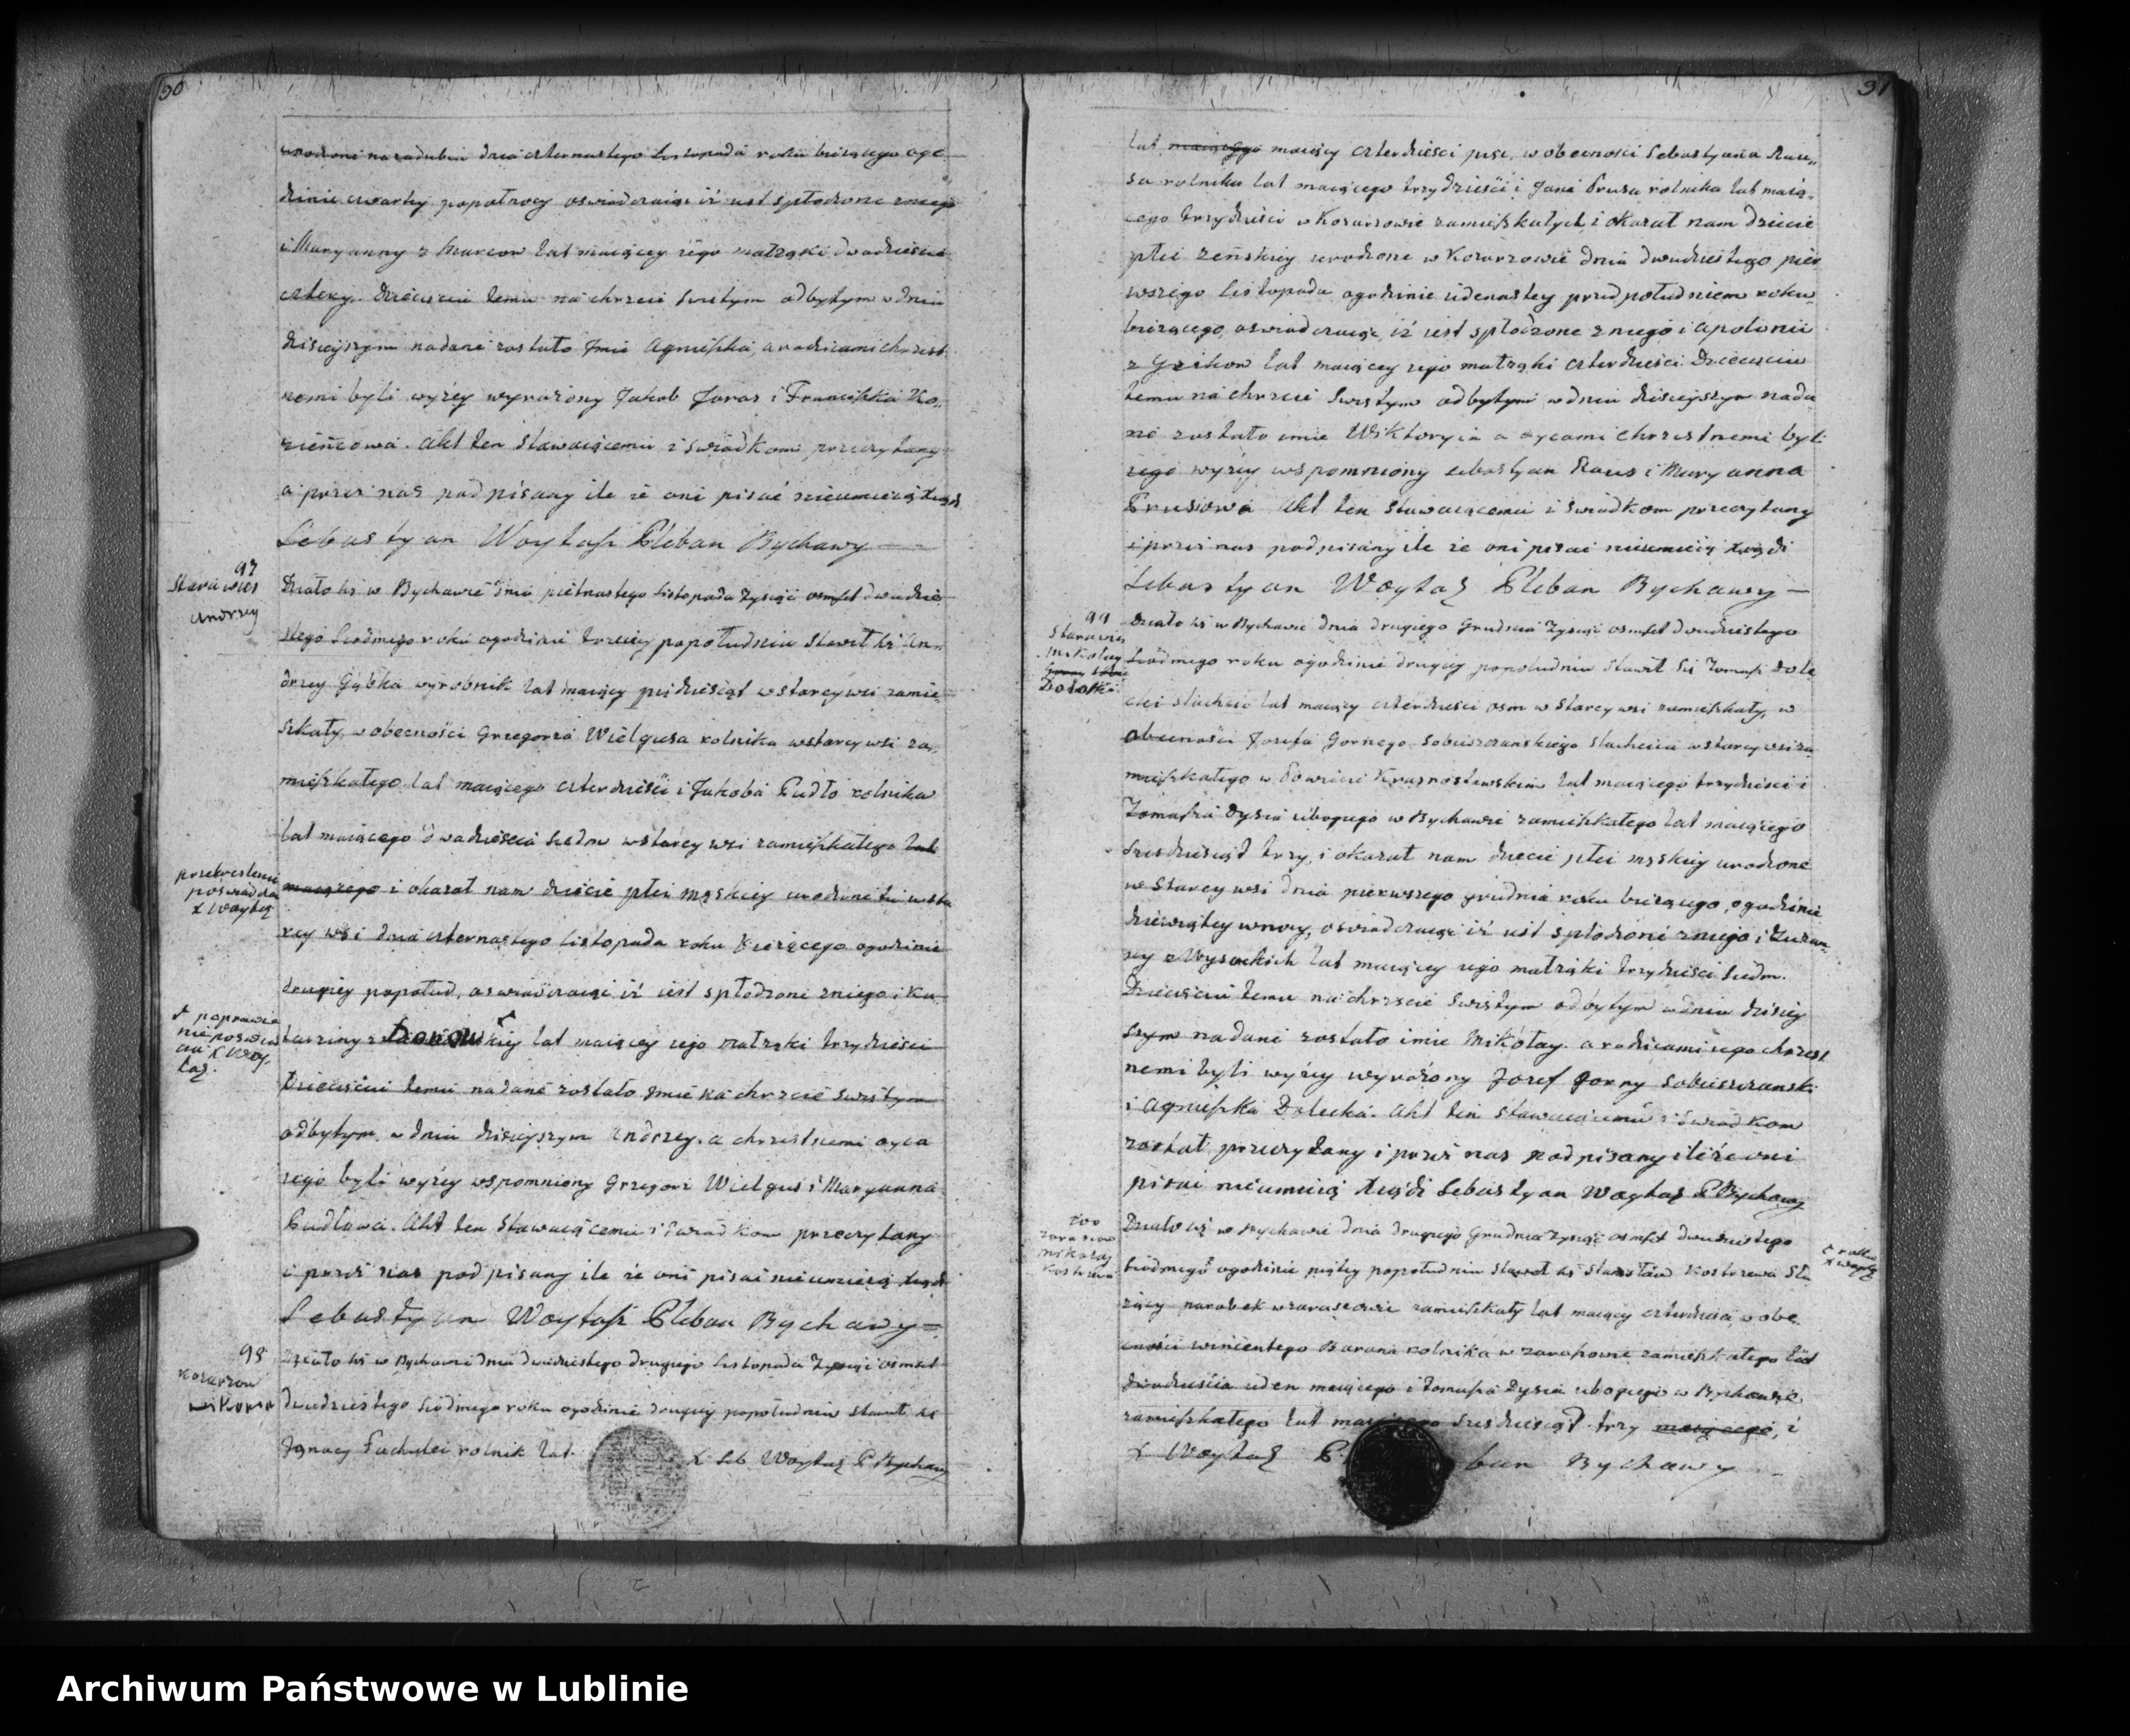 90
urodzone na zadubiu dnia czternastego Listopada roku bieżącego o go
dzinie czwarty popołnocy oswiadczaiąc iż iest spłodzone zniego
i Maryanny z Marcow lat maiącey iego małząki dwadziescia
cztery. Dziecięciu temu na chrzcie Swiętym odbytym w dniu
dzisieyszym nadane zostało Jmie Agnieszka, a rodzicami chrzest
nemi byli wyżey wyrażony Jakob Jaras i Franciszka Ko„
zieńcowa. Akt ten Stawaiącemu i Swiadkom przeczytany
a przez nas podpisany ile że oni pisać nieumieią
Sebastyan Woytasz Pleban Bychawy
97
Stara wies
Andrzey
Działo się w Bychawie dnia piętnastego Listopada Tysiąc osmset dwudzie
stego Siodmego roku ogodzinie trzeciey popołudniu Stawił się An„
drzey Gąbka wyrobnik lat maiący pięćdziesiąt w starey wsi zamie
szkały, w obecności Grzegorza Wielgusa rolnika w starey wsi za„
mieszkałego lat maiącego czterdzieści i Jakoba Pudło rolnika
lat maiącego dwadzieścia Siedm w starey wsi zamieszkałego lat
przekreslenie
poswiadcza
X Woytaz
maiącego i okazał nam dziecie płci męskiey urodzone tu w sta
rey wsi dnia czternastego listopada roku bieżącego ogodzinie
drugiey popołud, oswiadczaiąc iż iest spłodzone zniego i Ka
tarzyny z Donow skiey lat maiącey iego małząki trzydzieści
Dziecięciu temu nadane zostało Jmie na chrzcie Swiętym
odbytym, w dniu dzisieyszym Andrzey, a chrzestnemi oyca
iego byli wyżey wspomniony Grzegorz Wielgus i Maryanna
Pudłowa. Akt ten Stawaiącemu i Swiadkom przeczytany
i przez nas podpisany ile że oni pisać nieumieią
Sebastyan Woytasz Pleban Bychawy
98
Kozarzow
Działo się w Bychawie dnia dwudziestego drugiego Listopada Tysiąc osmset
dwudziestego Siodmego roku ogodzinie drugiey popołudniu Stawił się
Jgnacy rolnik lat
X Seb Woytaz P Bychawy
91
lat maiącego maiący czterdzieści pięć, w obecności Sebastyana Rau„
sa rolnika lat maiącego trzydzieści i Jana Prusa rolnika lat maią„
cego trzydzieści w Kozarzowie zamieszkałych i okazał nam dziecie
płci żeńskiey urodzone w Kozarzowie dnia dwudziestego pier
wszego Listopada ogodzinie iedenastey przed południem roku
bieżącego, oswiadczaiąc iż iest spłodzone zniego i Apolonii
z lat maiącey iego małząki czterdzieści. Dziecięciu
temu na chrzcie Swiętym odbytym w dniu dzisieyszym nada
ne zostało imie Wiktoryia a oycami chrzestnemi byli
iego wyżey wspomniony Sebastyan Raus i Maryanna
Prusowa Akt ten Stawaiącemu i Swiadkom przeczytany
i przez nas podpisany ile że oni pisać nieumieią
Sebastyan Woytaz Pleban Bychawy
99
Stara wies
Mikołay
Dolecki
Działo się w Bychawie dnia drugiego Grudnia Tysiąc osmset dwudziestego
Siodmego roku ogodzinie drugiey popołudniu Stawił się Tomasz Dole
cki Slachcic lat maiący czterdzieści osm w Starey wsi zamieszkały, w
obecności Jozefa Gornego Sobieszczanskiego Slachcica w starey wsi za
mieszkałego w Powiecie Krasnostawskim lat maiącego trzydzieści i
Tomasza Dysia ubogiego w Bychawie zamieszkałego lat maiącego
Szesdziesiąd trzy, i okazał nam dziecie płci męskiey urodzone
w Starey wsi dnia pierwszego grudnia roku bieżącego, ogodzinie
dziewiątey wnocy, oswiadczaiąc iż iest spłodzone zniego i Zuzan
ny z Wysockich lat maiącey iego małząki trzydzieści Siedm.
Dziecięciu temu na chrzcie Swiętym odbytym w dniu dzisiey
szym nadane zostało imie Mikołay. a rodzicami iego chrzest
nemi byli wyżey wyrażony Jozef Gorny Sobieszczanski
i Agnieszka Dolecka. Akt ten Stawaiącemu i Swiadkom
został przeczytany i przez nas podpisany ile że oni
pisać nieumieią Sebastyan Woytaz P Bychawy
100
Mikołay
Działo się w Bychawie dnia drugiego Grudnia Tysiąc osmset dwudziestego
Siodmego ogodzinie piątey popołudniu Stawił się Stanisław Kostrzewa Słu
żący parobek w zamieszkały lat maiący czterdzieści, w obe
cności Wincentego Barana rolnika w zamieszkałego lat
dwadzieścia ieden maiącego i Tomasza Dysia ubogiego w Bychawie
zamieszkałego lat maiącego Szesdziesiąd trzy maiącego, i
X Woytaz Pleban Bychawy
Archiwum Państwowe w Lublinie